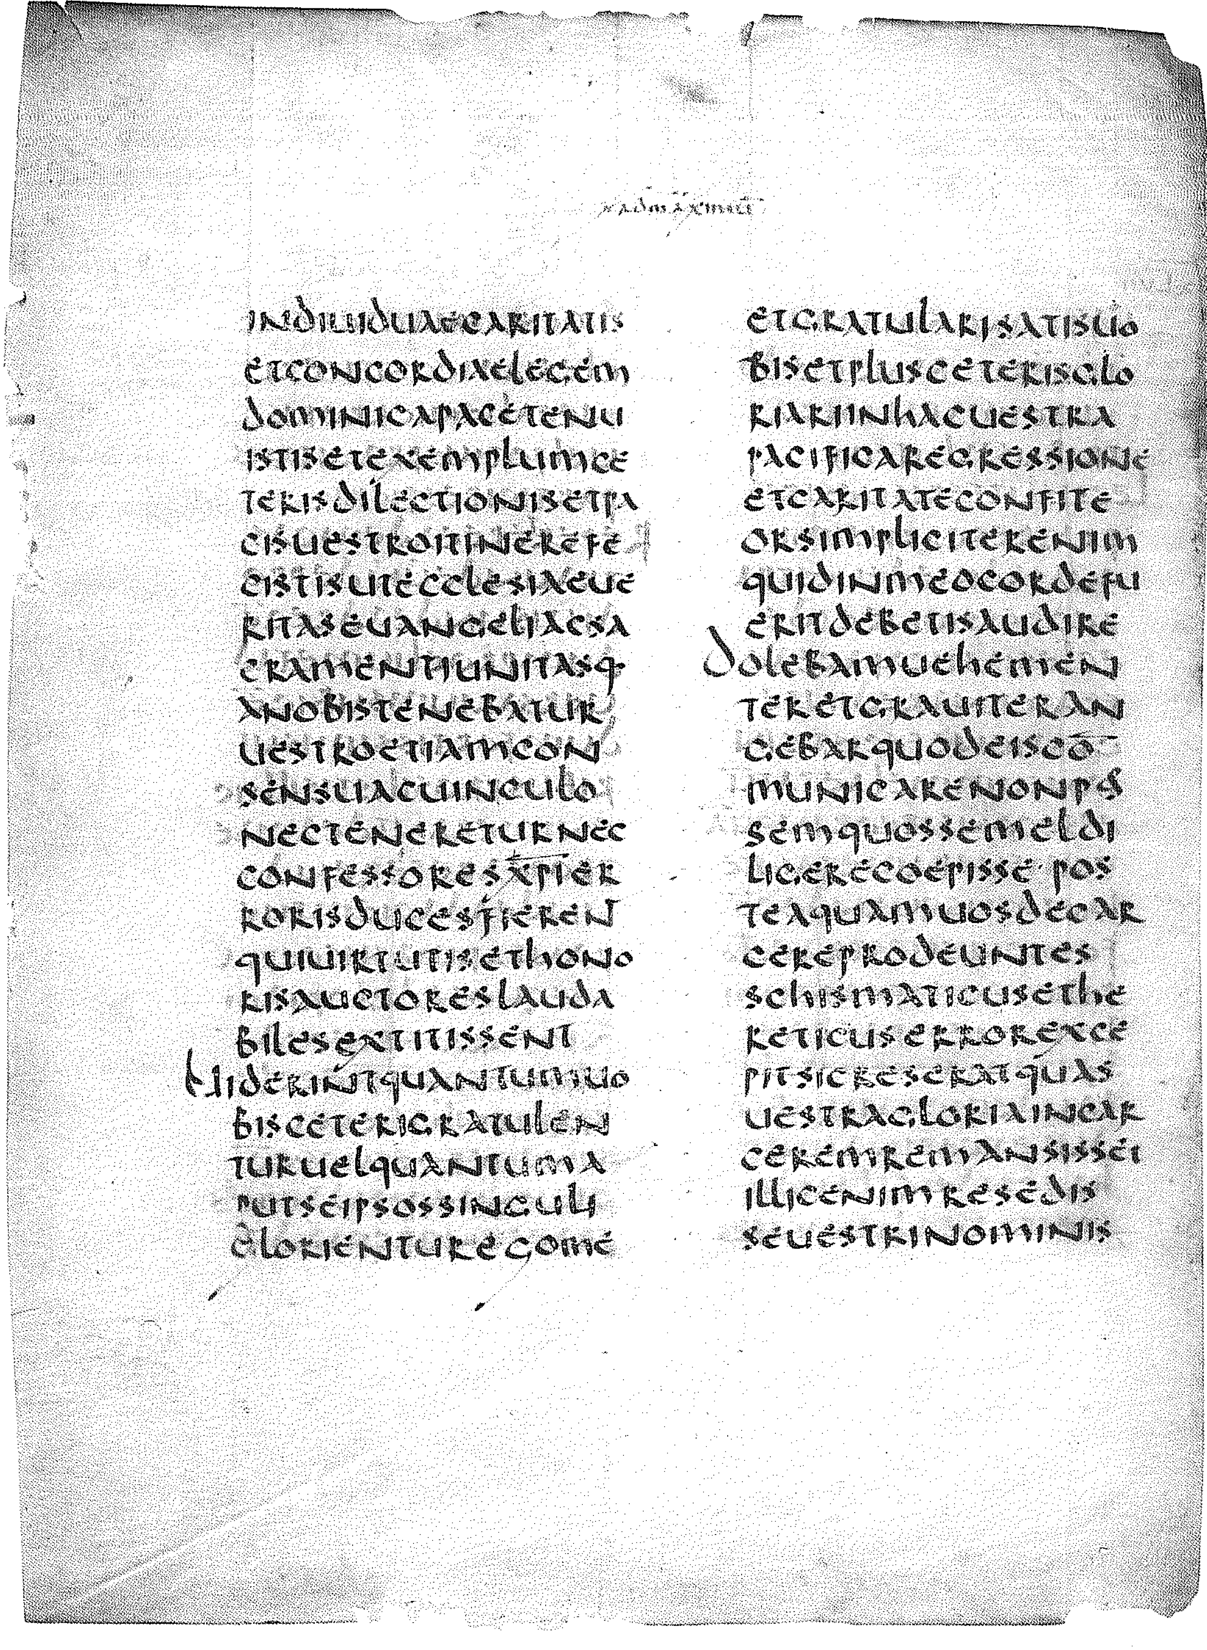 INDIUIDUAECARITATIS
ETCONCORDIAELEGEM
DOMINICAPACETENU
ISTISETEXEMPLUMCE
TERISDILECTIONISETPA
CISUESTROITINEREFE
CISTISUTECCLESIAEUE
RITASEUANGELIIAESA
CRAMENTIUNITASQ·
ANOBISTENEBATUR
UESTROETIAMCON
SENSUACUINCULO
NECTENERETURNEC
CONFESSORESX̅P̅I̅ER
RORISDUCESFIEREN
QUIUIRTUTISETHONO
RISAUCTORESLAUDA
BILESEXTITISSENT
UIDERINTQUANTUMUO
BISCETERIGRATULEN
TURUELQUANTUMA
PUTSEIPSOSSINGULI
GLORIENTUREGOME
ETGRATULARISATISUO
BISETPLUSCETERISGLO
RIARIINHACUESTRA
PACIFICAREGRESSIONE
ETCARITATECONFITE
ORSIMPLICITERENIM
QUIDINMEOCORDEFU
ERITDEBETISAUDIRE
DOLEBAMUEHEMEN
TERETGRAUITERAN
GEBARQUODEISCO̅
MUNICARENONPOS
SEMQUOSSEMELDI
LIGERECOEPISSE·POS
TEAQUAMUOSDECAR
CEREPRODEUNTES
SCHISMATICUSETHE
RETICUSERROREXCE
PITSICRESERATQUAS
UESTRAGLORIAINCAR
CEREMREMANSISSET
ILLICENIMRESEDIS
SEUESTRINOMINIS